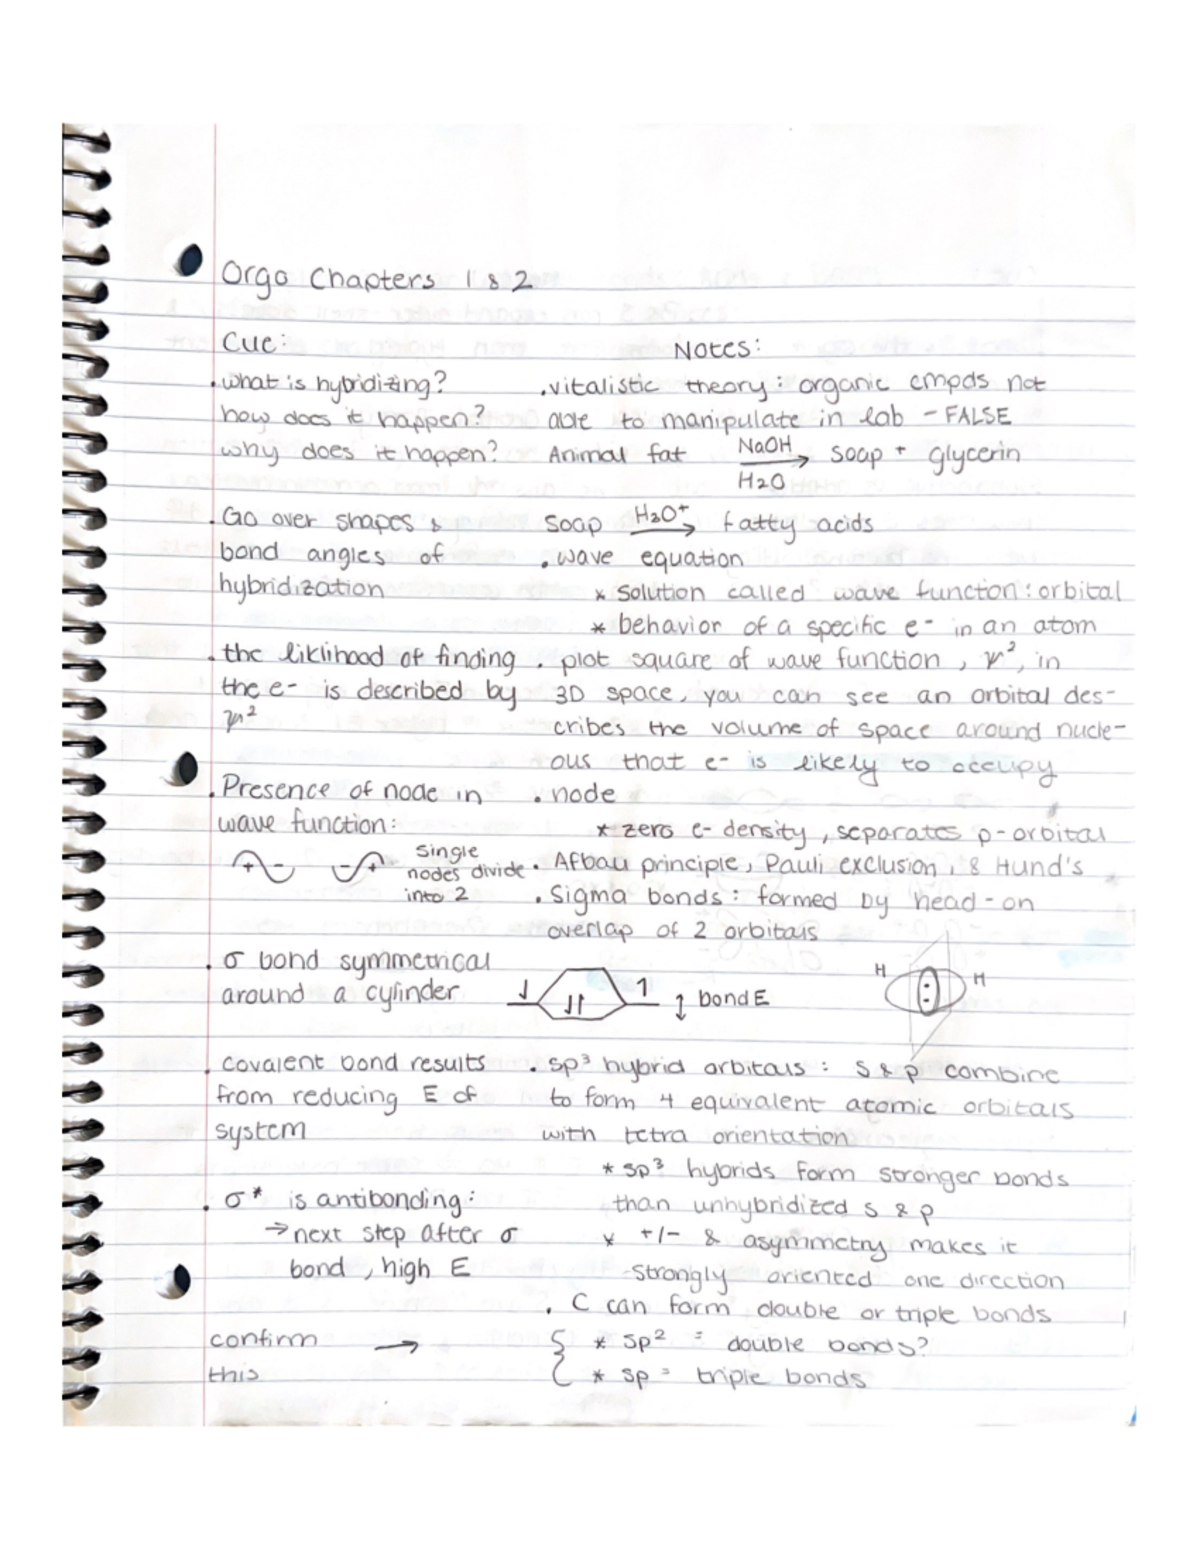 Orgo Chapters 1 & 2
Cue:
Notes:
. what is hybridizing?
how does it happen?
why does it happen?
. Go over shapes &
bond angles of
hybridization
. the liklihood of finding
the e- is described by
ψ²
. Presence of node in
wave function:
+ - - + single
nodes divide
into 2
. σ bond symmetrical
around a cylinder
. covalent bond results
from reducing E of
system
. σ* is antibonding:
→ next step after σ
bond, high E
confirm →
this
. vitalistic theory: organic cmpds not
able to manipulate in lab - FALSE
Animal fat NaOH → soap + glycerin
H2O
soap H3O+ → fatty acids
. wave equation
* solution called wave function: orbital
* behavior of a specific e- in an atom
. plot square of wave function, ψ², in
3D space, you can see an orbital des-
cribes the volume of space around nucle-
ous that e- is likely to occupy
. node
* zero e- density, separates p-orbital
. Afbau principle, Pauli exclusion, & Hund's
. Sigma bonds: formed by head-on
overlap of 2 orbitals
⇃ ⇃↾ 1 ↕ bond E
H : H
. sp³ hybrid orbitals: s & p combine
to form 4 equivalent atomic orbitals
with tetra orientation
* sp³ hybrids form stronger bonds
than unhybridized s & p
* +/- & asymmetry makes it
strongly oriented one direction
. C can form double or triple bonds
{ * sp² = double bonds?
* sp = triple bonds